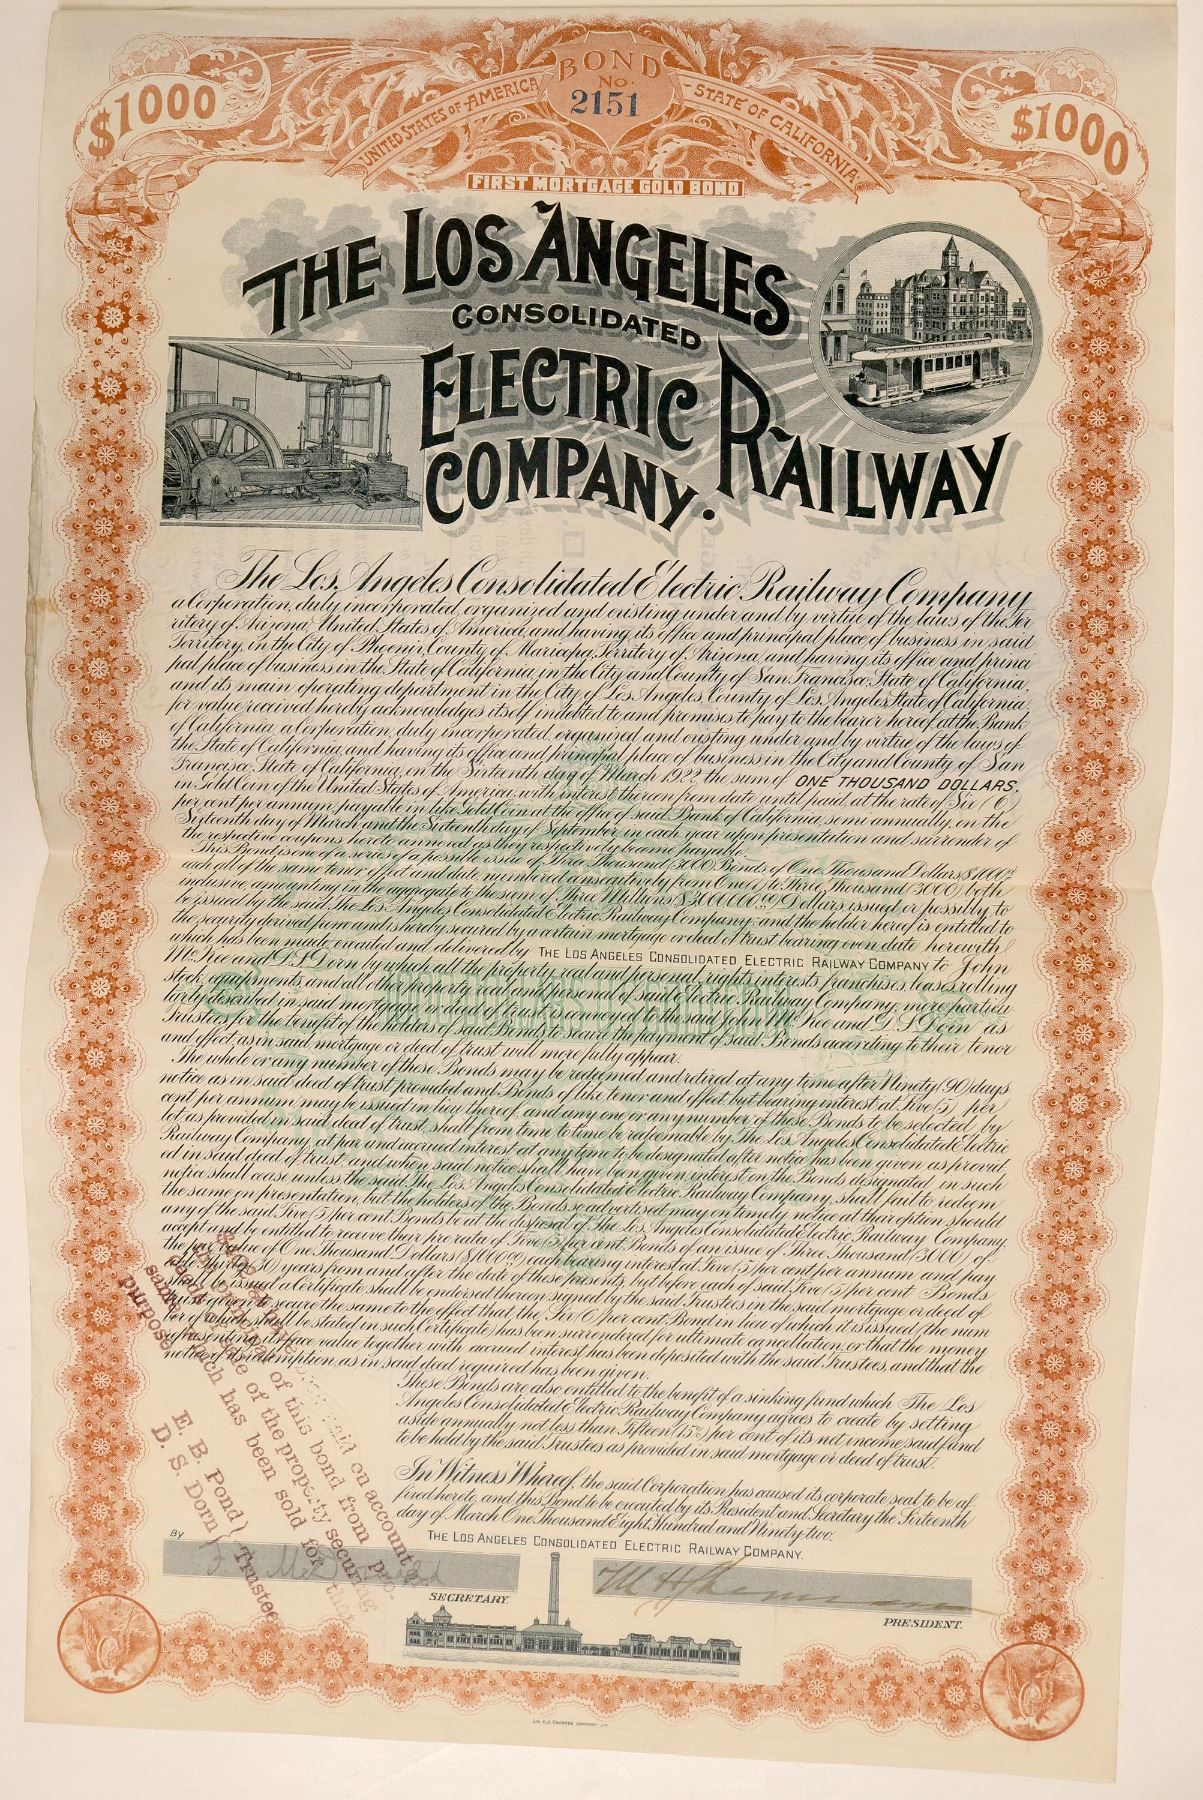 BOND
No.
2151
$1000
UNITED STATES OF AMERICA
STATE OF CALIFORNIA.
$1000
FIRST MORTGAGE GOLD BOND
THE LOS ANGELES
CONSOLIDATED
ELECTRIC RAILWAY
COMPANY.
The Los Angeles Consolidated Electric Railway Company
a Corporation, duly incorporated, organized and existing under and by virtue of the laws of the Ter
ritory of Arizona, United States of America, and having its office and principal place of business in said
Territory, in the City of Phoenix, County of Maricopa, Territory of Arizona, and having its office and princi
pal place of business in the State of California, in the City and County of San Francisco, State of California,
and its main operating department in the City of Los Angeles, County of Los Angeles, State of California,
for value received hereby acknowledges itself indebted to and promises to pay to the bearer hereof, at the Bank
of California, a Corporation, duly incorporated, organized and existing under and by virtue of the laws of
the State of California, and having its office and principal place of business in the City and County of San
Francisco, State of California, on the Sixteenth day of March 1922, the sum of ONE THOUSAND DOLLARS,
in Gold Coin of the United States of America, with interest thereon from date until paid, at the rate of Six (6)
per cent per annum, payable in like Gold Coin at the office of said Bank of California, semi annually, on the
Sixteenth day of March, and the Sixteenth day of September, in each year, upon presentation and surrender of
the respective coupons hereto annexed as they respectively become payable.
This Bond is one of a series of a possible issue of Three Thousand (3000) Bonds of One Thousand Dollars $1000.00
each all of the same tenor, effect and date numbered consecutively from One (1) to Three Thousand (3000) both
inclusive, amounting in the aggregate to the sum of Three Millions ($3,000,000.00) Dollars issued or possibly to
be issued by the said The Los Angeles Consolidated Electric Railway Company, and the holder hereof is entitled to
the security derived from and is hereby secured by a certain mortgage or deed of trust bearing even date herewith
which has been made, executed and delivered by THE LOS ANGELES CONSOLIDATED ELECTRIC RAILWAY COMPANY to John
McKee and D. S. Dorn by which all the property, real and personal, rights, interests, franchises, leases, rolling
stock, equipments, and all other property, real and personal of said Electric Railway Company, more particu
larly described in said mortgage or deed of trust is conveyed to the said John McKee and D. S. Dorn as
Trustees for the benefit of the holders of said Bonds to secure the payment of said Bonds according to their tenor
and effect, as in said mortgage or deed of trust will more fully appear.
The whole or any number of these Bonds may be redeemed and retired at any time after Ninety (90) days
notice as in said deed of trust provided and Bonds of like tenor and effect, but bearing interest at Five (5) per
cent per annum may be issued in lieu thereof, and any one or any number of these Bonds to be selected by
lot as provided in said deed of trust, shall from time to time be redeemable by The Los Angeles Consolidated Electric
Railway Company, at par and accrued interest at any time to be designated after notice has been given as provid
ed in said deed of trust, and when said notice shall have been given interest on the Bonds designated in such
notice shall cease unless the said The Los Angeles Consolidated Electric Railway Company, shall fail to redeem
the same on presentation, but the holders of the Bonds so advertised may on timely notice at their option should
any of the said Five (5) per cent Bonds be at the disposal of The Los Angeles Consolidated Electric Railway Company
accept and be entitled to receive their pro rata of Five (5) per cent Bonds of an issue of Three Thousand (3000) of
the par value of One Thousand Dollars ($1,000.00) each bearing interest at Five (5) per cent per annum and pay
able thirty 30 years from and after the date of these presents, but before each of said Five (5) per cent Bonds
shall be issued a Certificate shall be endorsed thereon signed by the said Trustees in the said mortgage or deed of
trust given to secure the same to the effect that the Six (6) per cent Bond in lieu of which it is issued (the num
ber of which shall be stated in such Certificate) has been surrendered for ultimate cancellation, or that the money
representing its face value together with accrued interest has been deposited with the said Trustees, and that the
notice of its redemption, as in said deed required has been given.
These Bonds are also entitled to the benefit of a sinking fund which The Los
Angeles Consolidated Electric Railway Company agrees to create by setting
aside annually not less than Fifteen (15%) per cent of its net income, said fund
to be held by the said Trustees as provided in said mortgage or deed of trust.
In Witness Whereof, the said Corporation has caused its corporate seal to be af
fixed hereto, and this Bond to be executed by its President and Secretary the Sixteenth
day of March One Thousand Eight Hundred and Ninety two.
THE LOS ANGELES CONSOLIDATED ELECTRIC RAILWAY COMPANY.
By
SECRETARY.
M H Sherman
PRESIDENT.
paid on account
of this bond from pro-
of the property securing
same, which has been sold for that
purpose.
E. B. Pond
D. S. Dorn
} Trustees